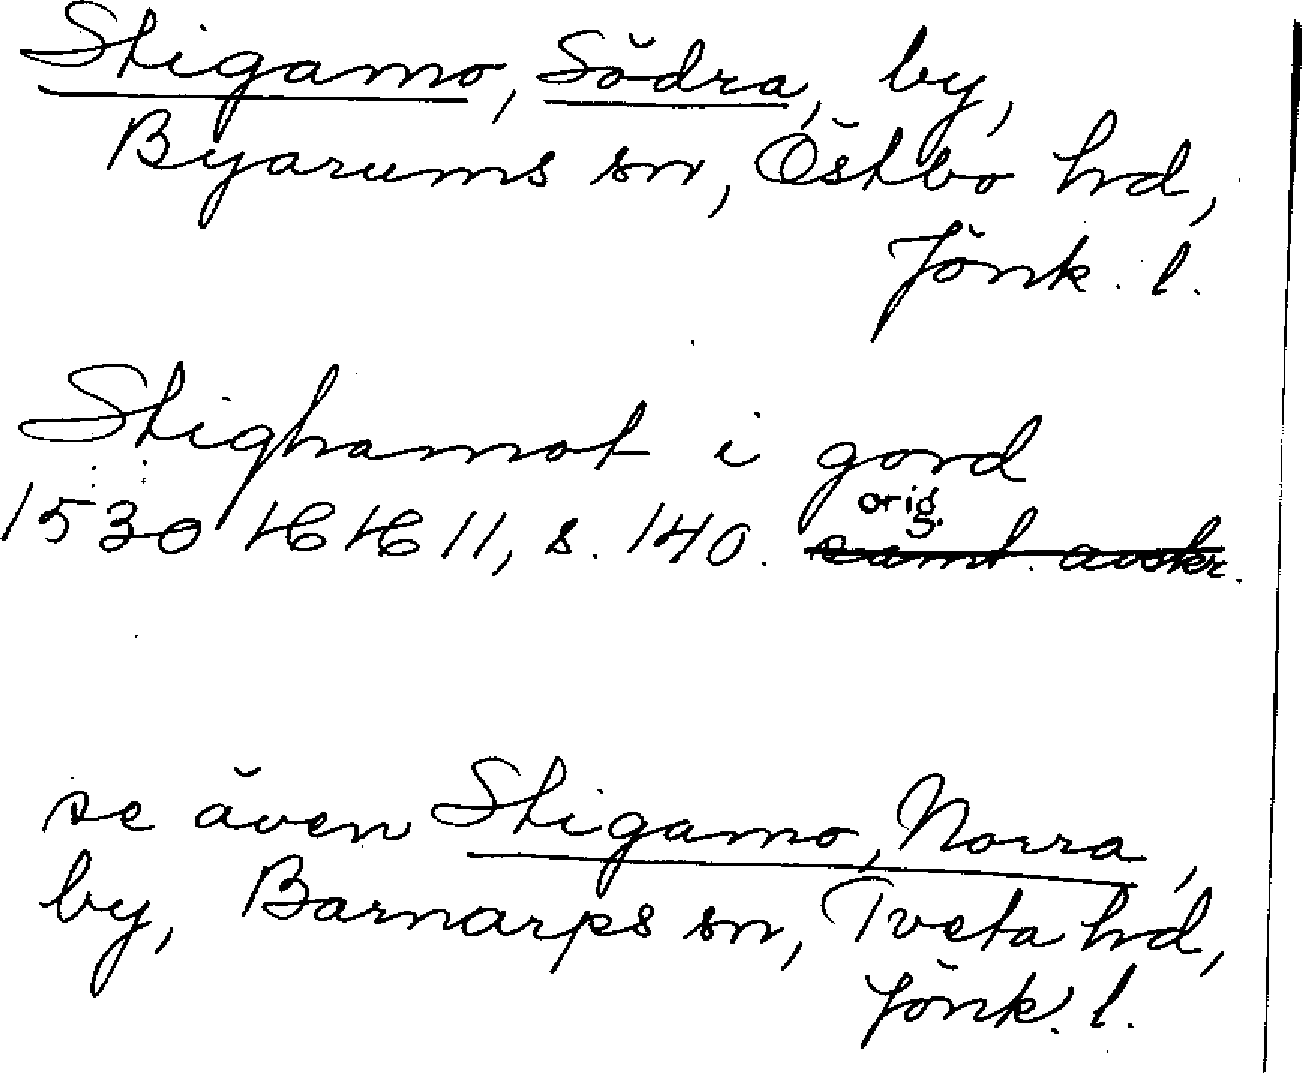 Stigamo, Södra, by,
Byarums sn, Östbo hd,
Jönk. l.
Stighamot i gord
orig.
1530 HH 11, s. 140. saml. avskr.
se även Stigamo, Norra,
by, Barnarps sn, Tveta hd,
Jönk. l.